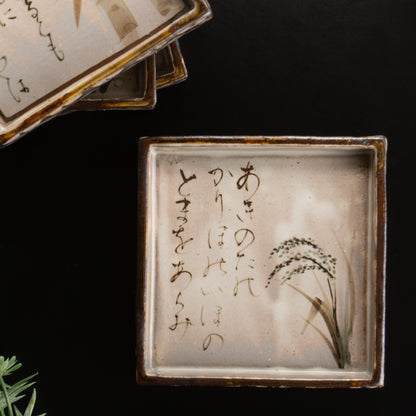 あきのたの
かりほのいほの
とまをあらみ